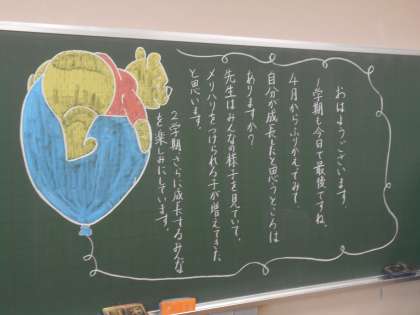 おはようございます。
1学期も今日で最後ですね。
4月からふりかえてみて、
自分が成長したと思うところは
ありますか？
先生はみんなの様子を見ていて、
メリハリをつけられる子が増えてきた
と思います。
2学期、さらに成長するみんな
を楽しみにしています。